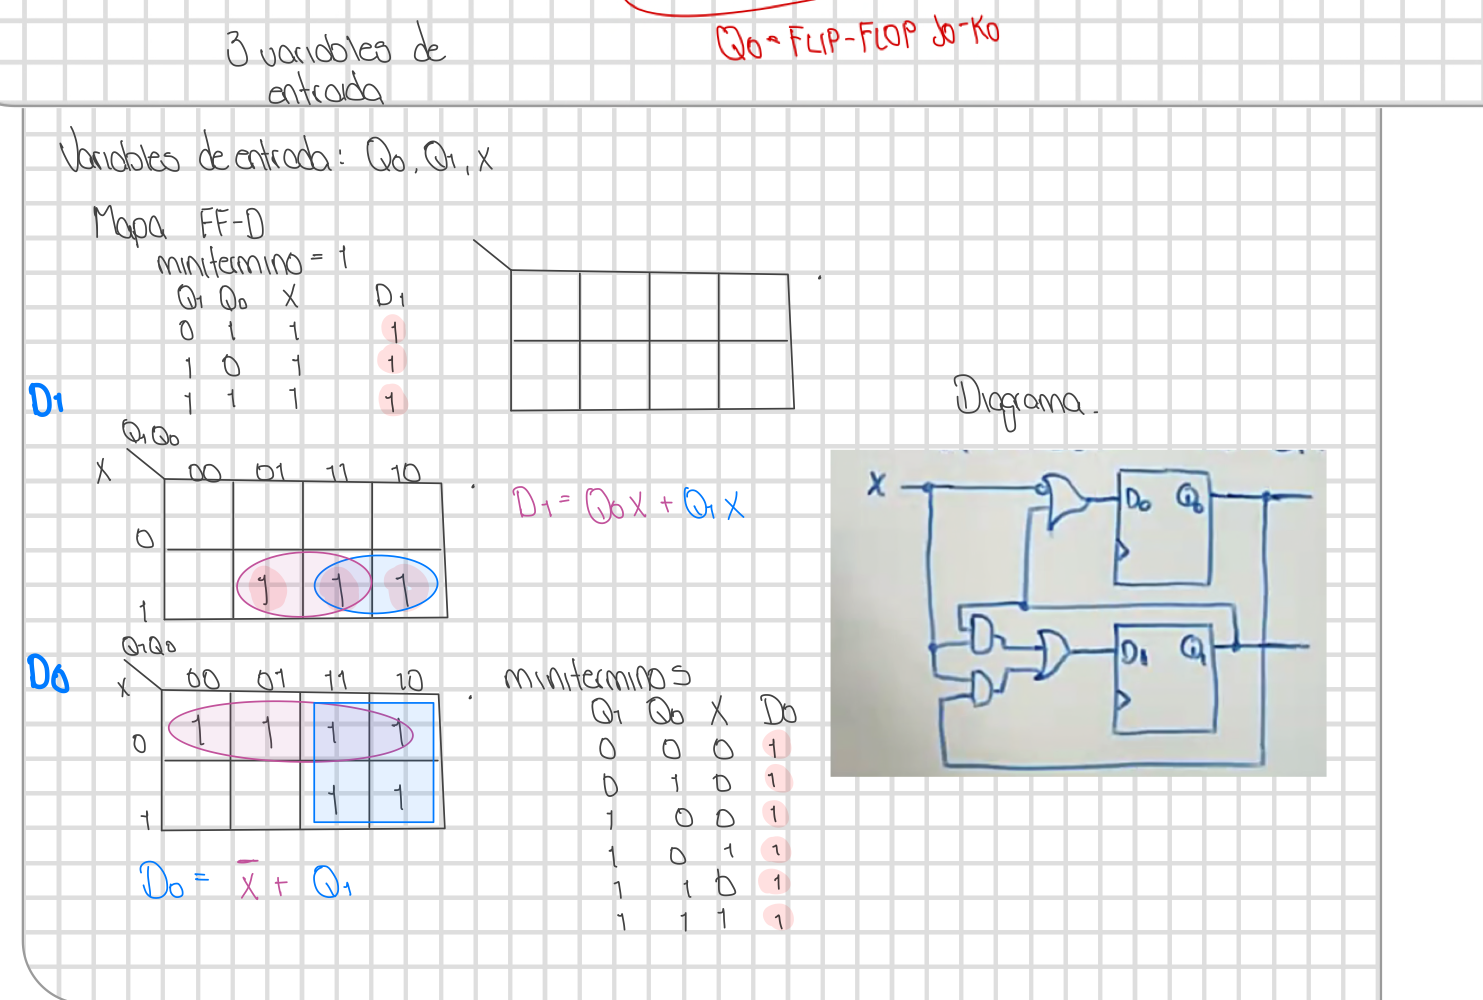 3 variables de
entrada
Q0 = FLIP-FLOP J0-K0
Variables de entrada: Q0, Q1, X
Mapa FF-D
minitermino = 1
Q1 Q0 X D1
0 1 1 1
1 0 1 1
1 1 1 1
D1
Q1Q0
X 00 01 11 10
0
1 1 1 1
D1 = Q0X + Q1X
Diagrama.
X D0 Q0
D1 Q1
D0
Q1Q0
X 00 01 11 10
0 1 1 1 1
1 1 1
D0 = X̅ + Q1
miniterminos
Q1 Q0 X D0
0 0 0 1
0 1 0 1
1 0 0 1
1 0 1 1
1 1 0 1
1 1 1 1